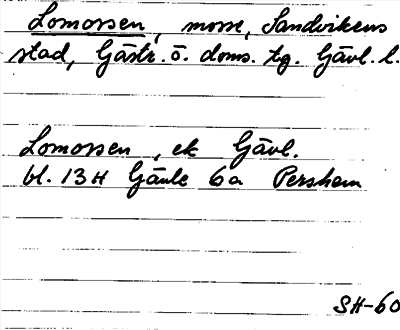 Lomossen, mosse, Sandvikens
stad, Gästr. ö. doms. tg. Gävl. l.
Lomossen, ek Gävl.
bl. 13H Gävle 6a Pershem
SH-60